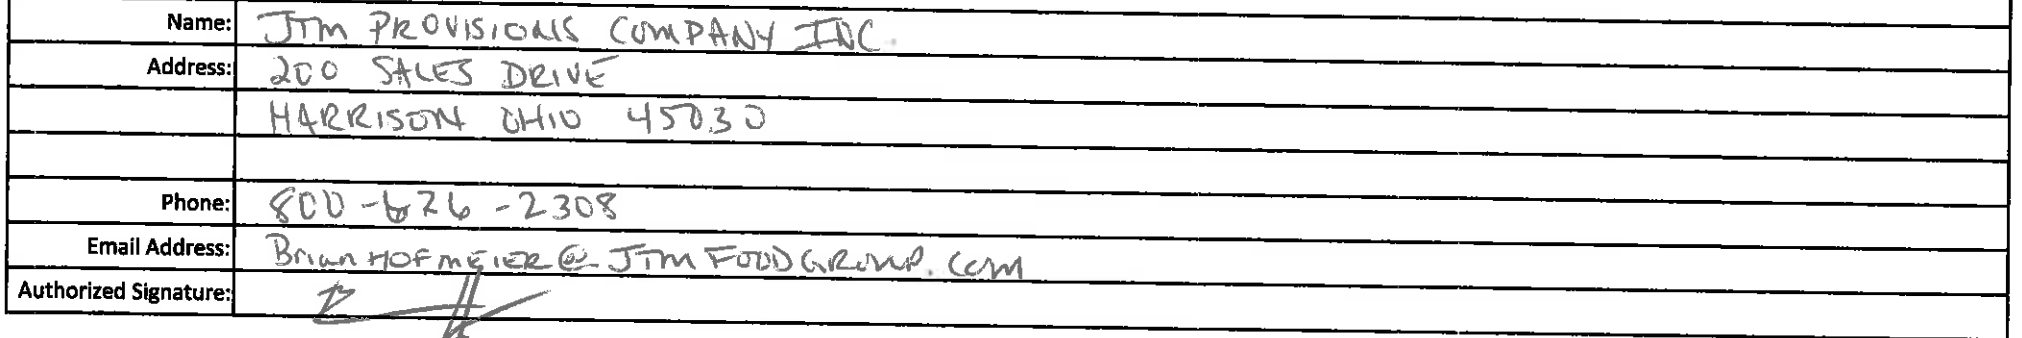 Name: JTM PROVISIONS COMPANY INC.
Address: 200 SALES DRIVE
HARRISON OHIO 45030
Phone: 800-626-2308
Email Address: BrianHOFMEIER@JTMFOODGROUP.COM
Authorized Signature: